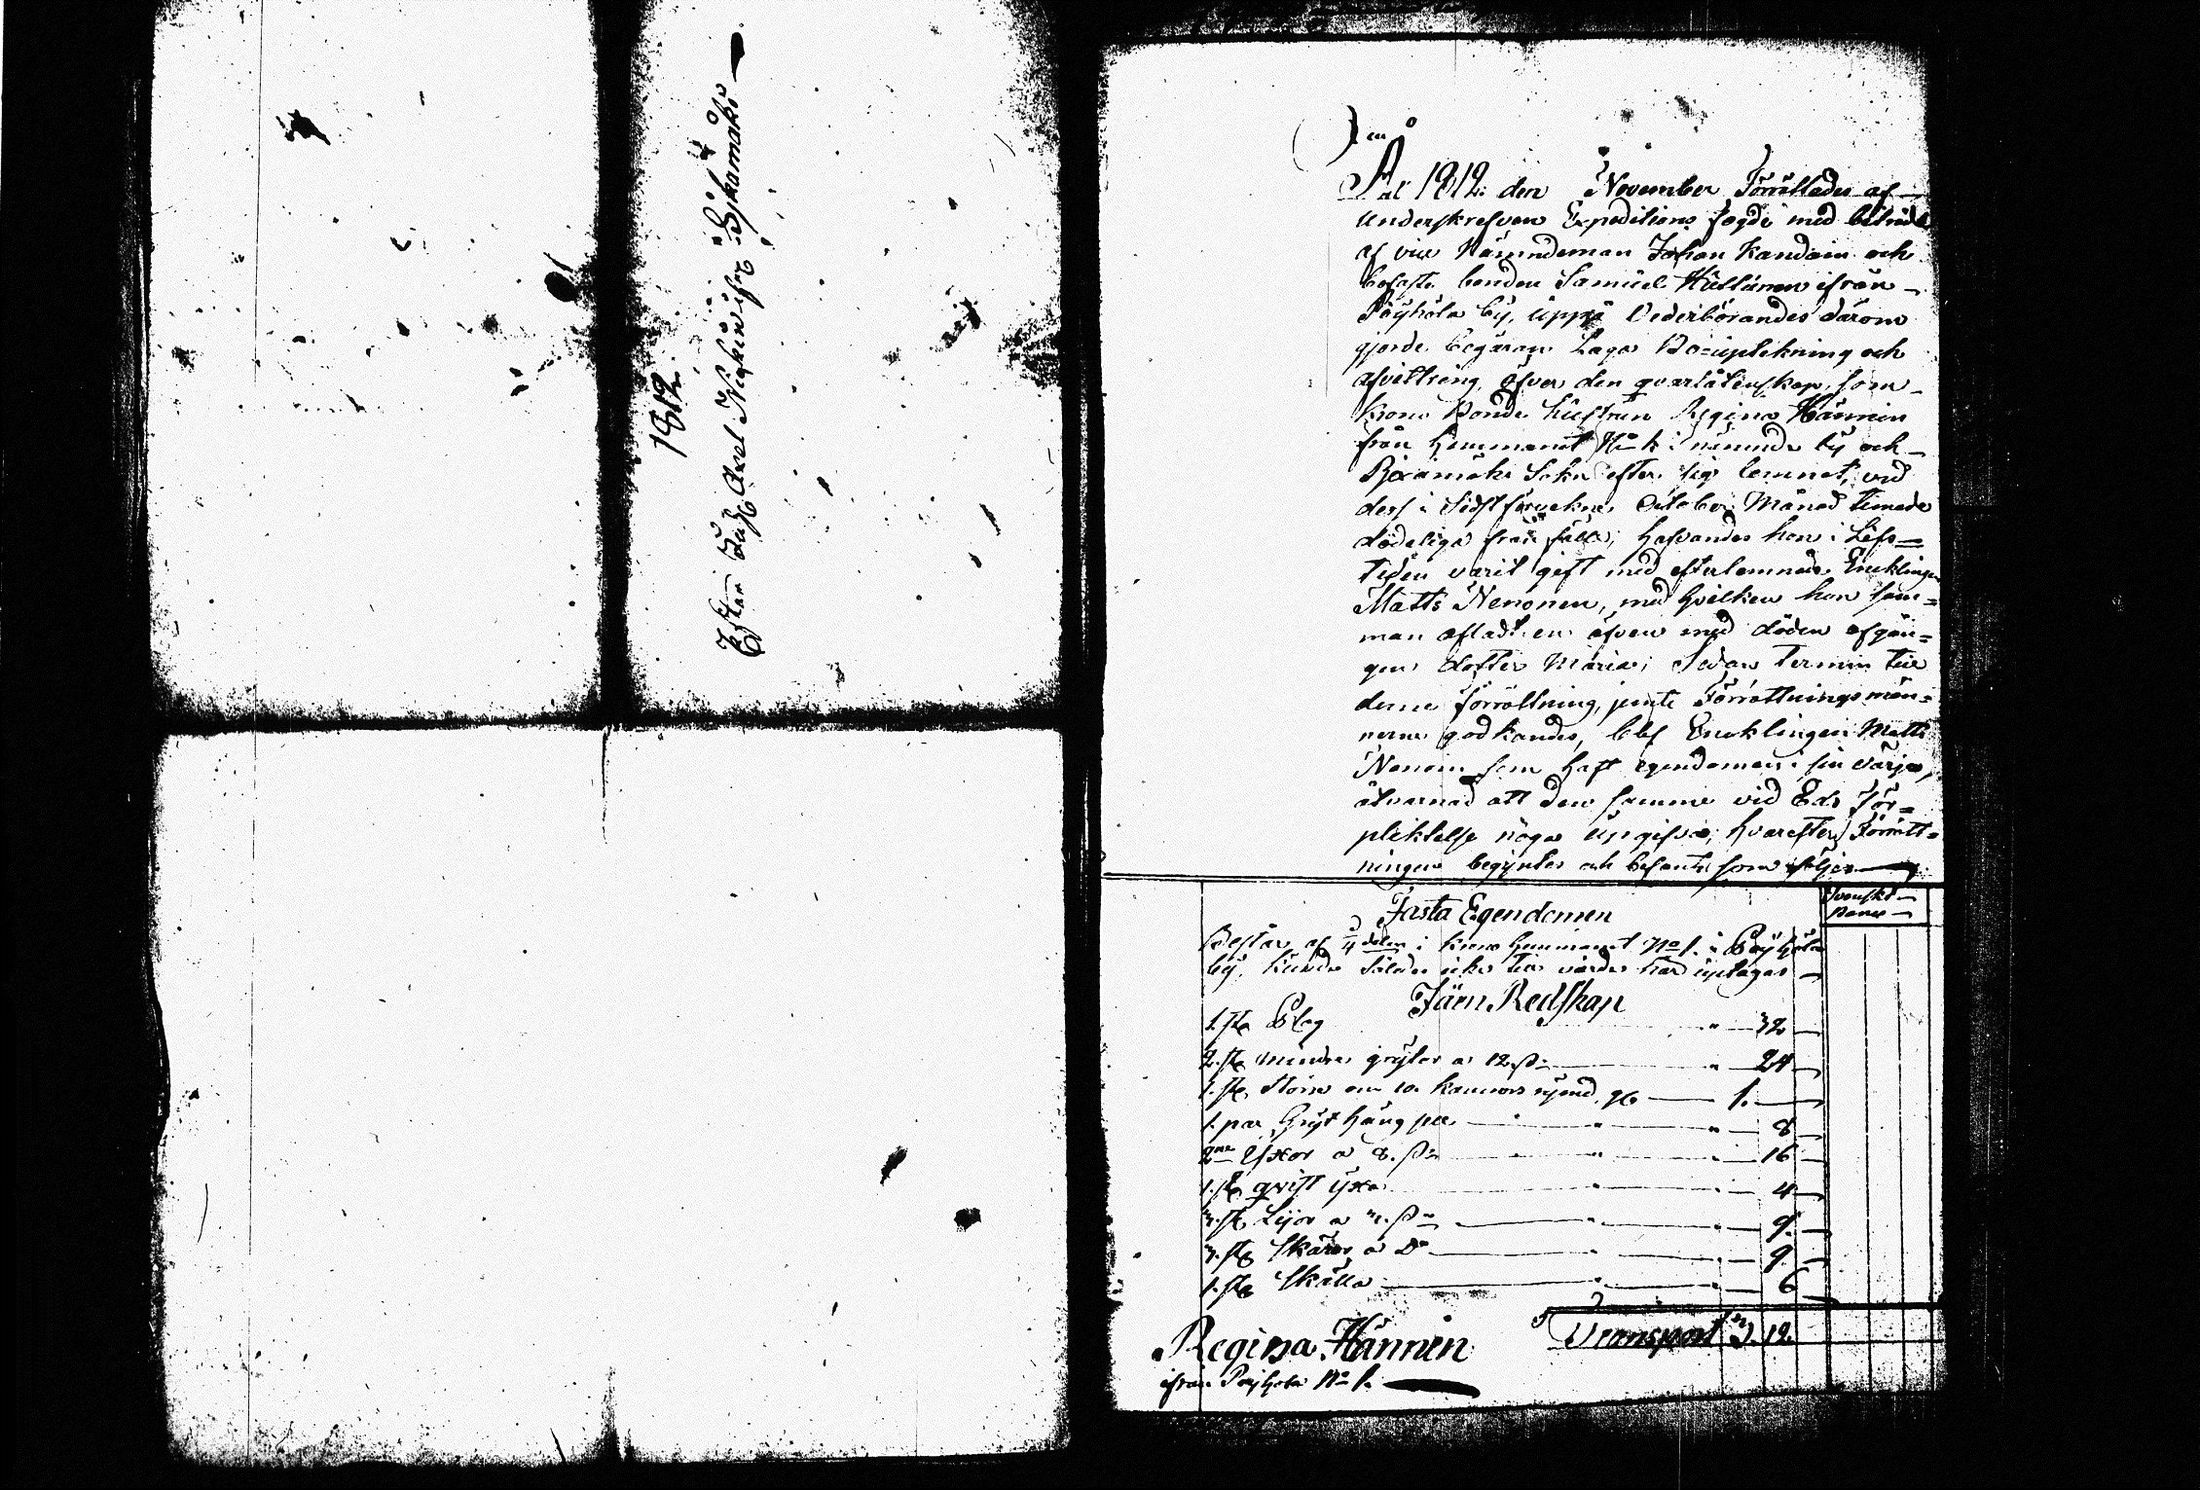 1812.
Efter Axel Nissinen ifr: Rjkamäki
År 1812. den November Förrättades af
underskrefven Expeditions fogde med biträde
af vice Nämndeman Johan och
bofaste bonden Samuel ifrån
Pöyhölä by, uppå Vederbörandes därom
gjorde begäran Laga Bouptekning och
afvittring öfver den qvarlåtenskap, som
Krono Bonde hustrun Regina Hännin
från Hemmanet No 1. i nämnde by och
efter sig lemnat, vid
dess i sidst förvekne October Månad timade
dödeliga frånfälle; hafvandes hon i Lifs=
tiden varit gift med efterlemnade Encklingen
Matts Nenonen, med hvilken hon sam=
man afladt en äfven med döden afgån=
gen dotter Maria; Sedan termin till
denne förrättning, jemte Förrättningsmän=
nerne godkändes, blef Encklingen Matts
Nenonen som haft egendomen i sin värjo,
åtvarnad att den samme vid Eds För=
pliktelse noga Upgifva; hvarefter Förrätt=
ningen begyntes och befants som följer
Svenskt
Fasta Egendomen
Består af 3/4 delar i krono hemmanet No 1. i Pöyhölä
by, kunde således icke till värde här uptagas
Järn Redskap
1. st. Plog " 32
2. st. mindre grytor a 12 ß " 24
1. st. större om 10. kannors rymd 1.
1. par Gryt häng " " 8
2ne Yxor a 8. ß " " 16
1. st. qvist yxa " " 4
3. st. Lijor a 3. ß " " 9.
3. st. Skäror a Do " " 9.
1. st. Skälla " " 6
Transport 3. 12.
Regina Hännin
ifrån Pöyhölä No 1.